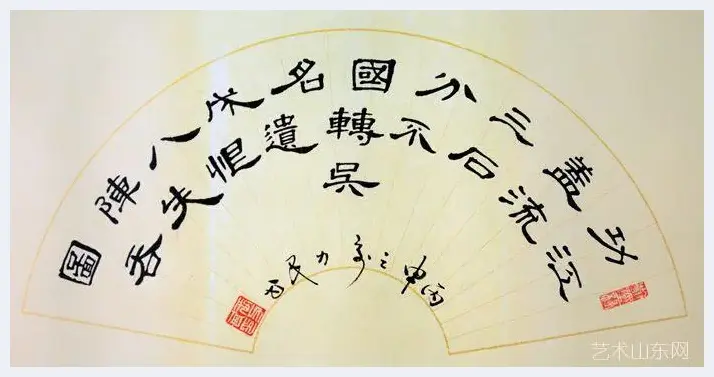 功蓋三分國名成八陣圖
江流石不轉遺恨失吞
吳
丙申之力民书
艺术山东网